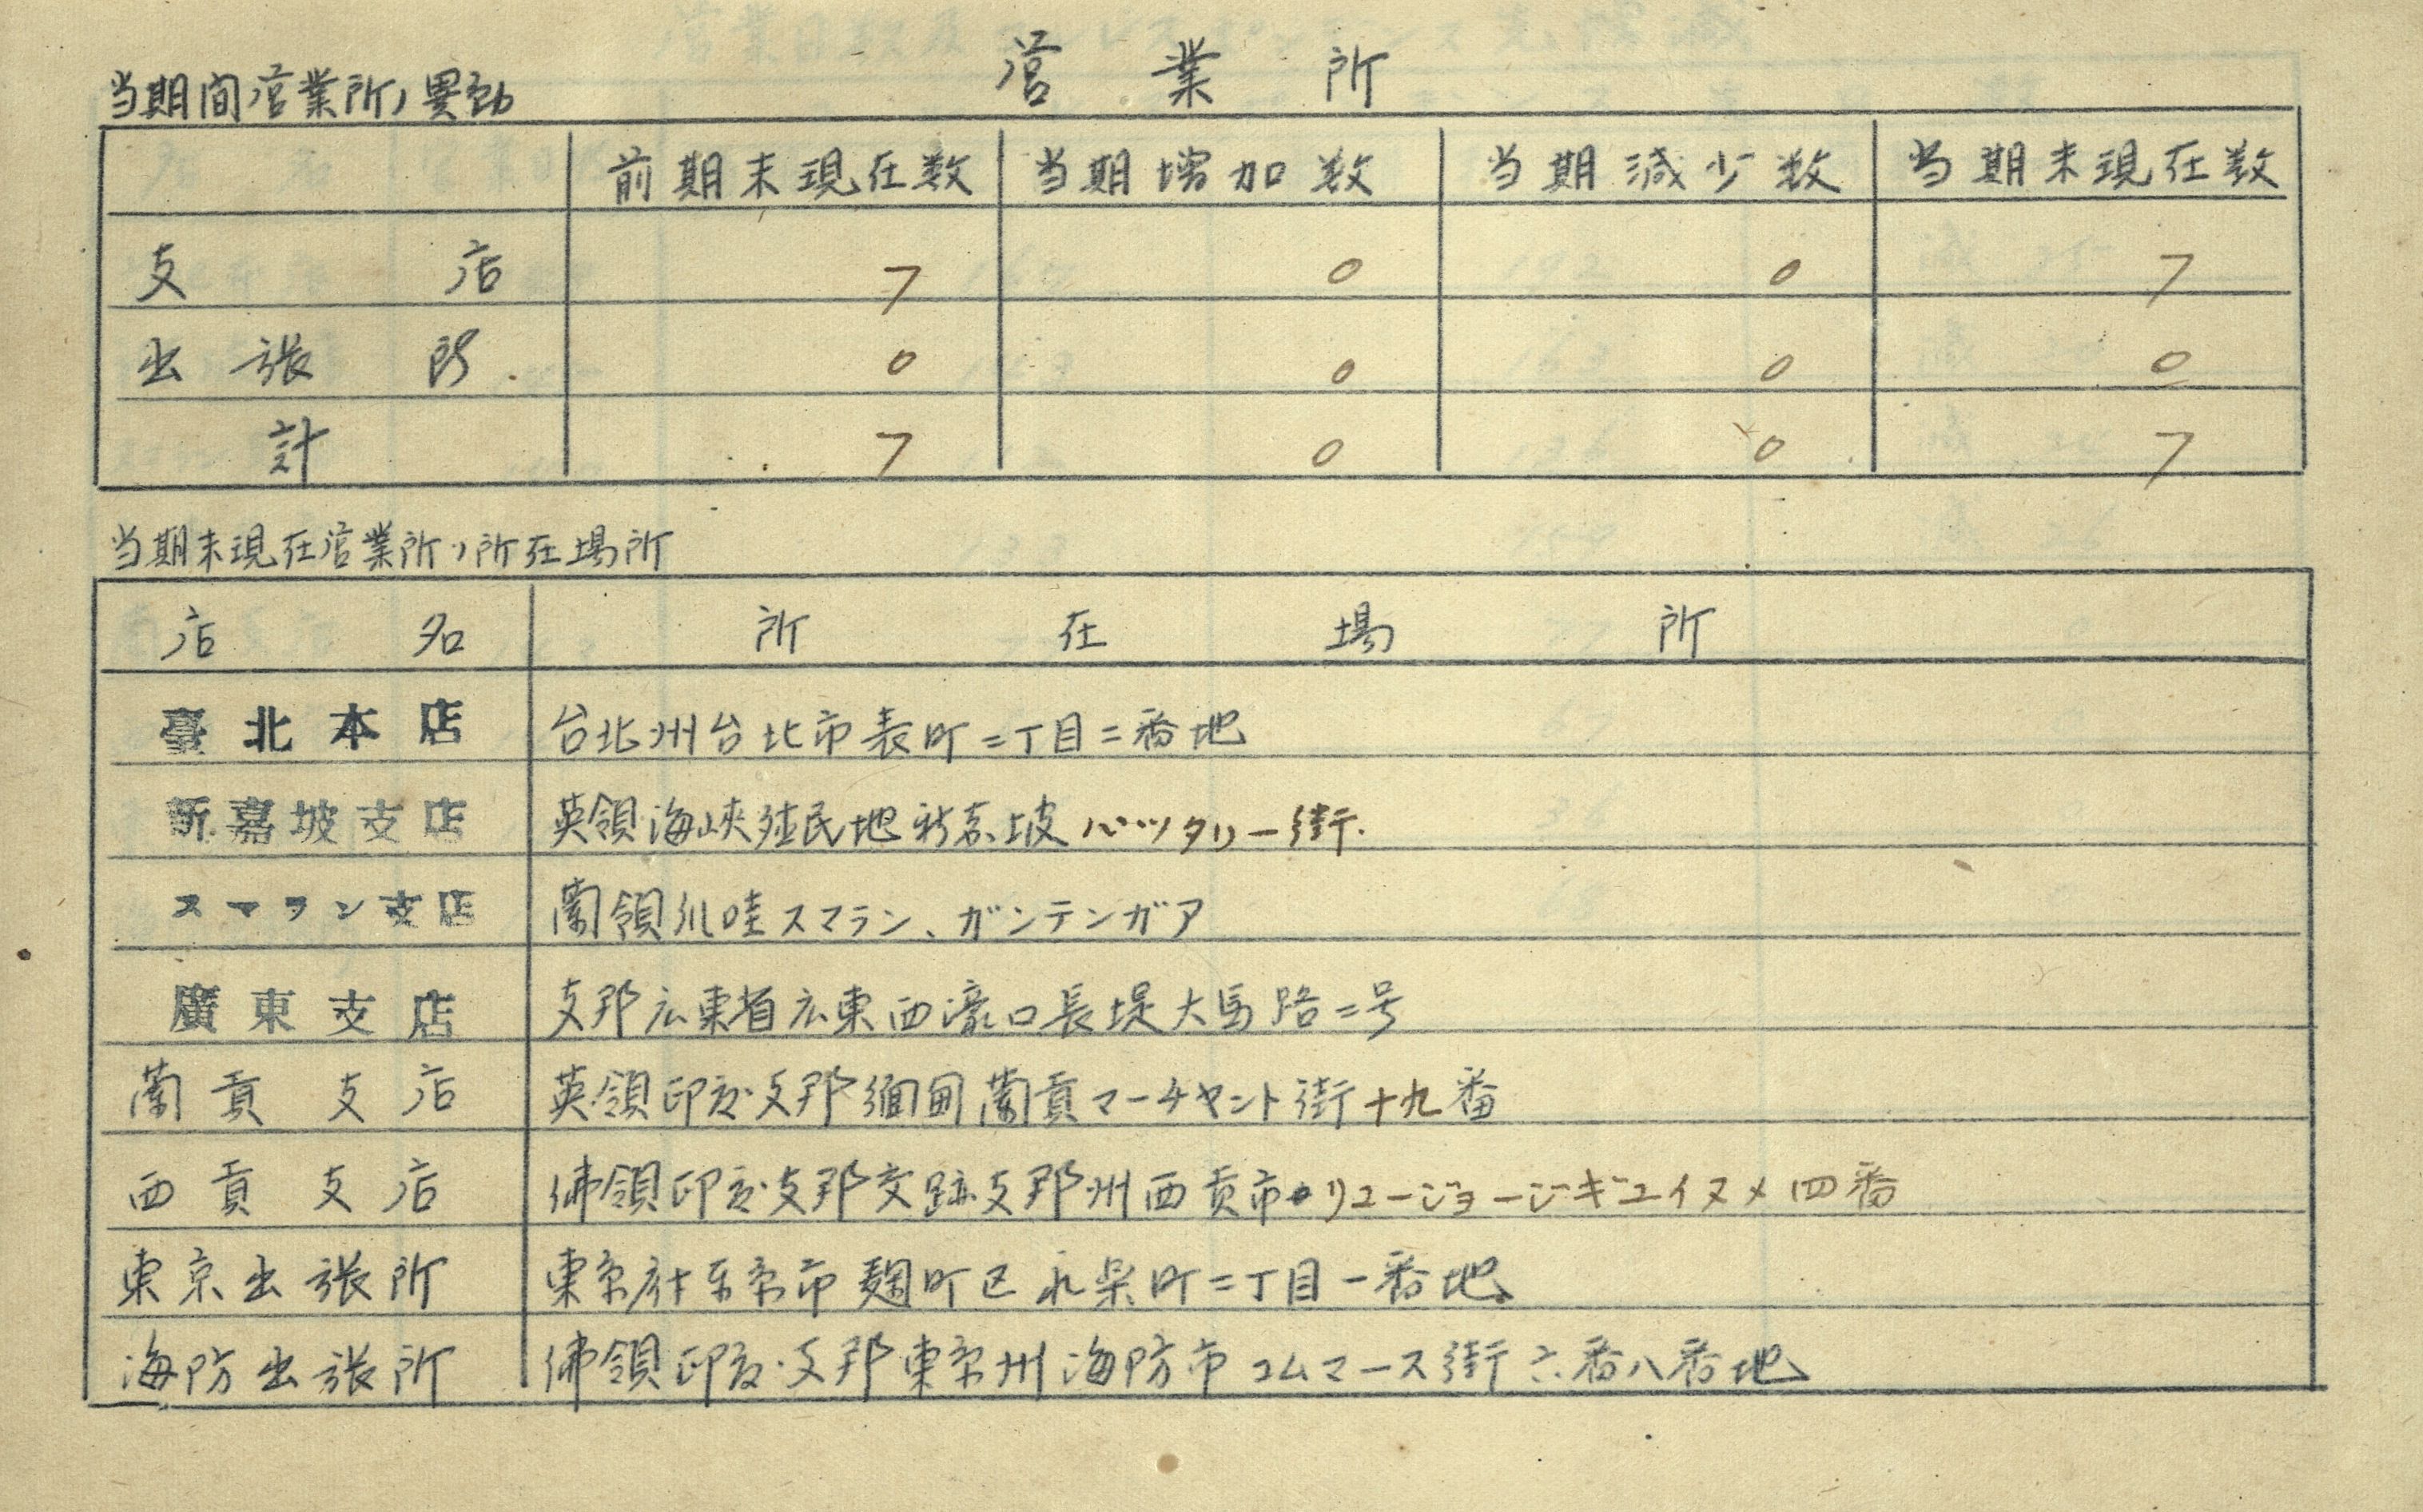 営業所
当期間営業所ノ異動
前期末現在数 当期増加数 当期減少数 当期末現在数
支店 7 0 0 7
出張所 0 0 0 0
計 7 0 0 7
当期末現在営業所ノ所在場所
店名 所在場所
臺北本店 台北州台北市表町二丁目二番地
新嘉坡支店 英領海峡殖民地新嘉坡バッタリー街
スマラン支店 蘭領爪哇スマラン、ガンテンガア
廣東支店 支那広東省広東西濠口長堤大馬路二号
蘭貢支店 英領印度支那緬甸蘭貢マーチャント街十九番
西貢支店 佛領印度支那交趾支那州西貢市リュージョージギュイヌメ四番
東京出張所 東京府東京市麹町区永楽町二丁目一番地
海防出張所 佛領印度支那東京州海防市コムマース街六番八番地